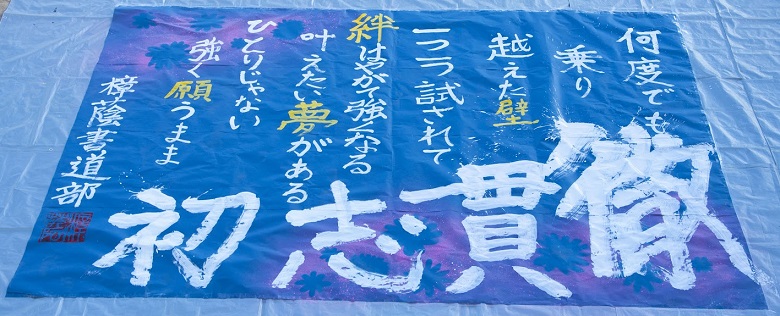 何度でも
乗り
越えた壁
一つ一つ試されて
絆はやがて強くなる
叶えたい夢がある
ひとりじゃない
強く願うまま
初志貫徹
樟蔭書道部